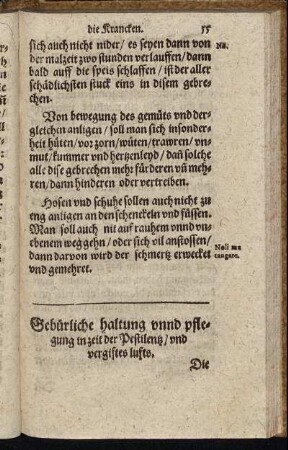 die Krancken. 55
sich auch nicht nider / es seyen dann von
der malzeit zwo stunden verlauffen / dann
bald auff die speis schlaffen / ist der aller
schädlichsten stuck eins in disem gebre-
chen.
Von bewegung des gemüts vnd der-
gleichen anligen / soll man sich insonder-
heit hüten / vor zorn / wüten / trawren / vn-
mut / kummer vnd hertzenleyd / dañ solche
alle dise gebrechen mehr fürderen vñ meh-
ren / dann hinderen oder vertreiben.
Hosen vnd schuhe sollen auch nicht zu
eng anligen an den schenckeln vnd füssen.
Man soll auch nit auf rauhem vnnd vn-
ebenem weg gehn / oder sich vil anstossen /
dann darvon wird der schmertz erwecket
vnd gemehret.
Noli me
tangere.
Gebürliche haltung vnnd pfle-
gung in zeit der Pestilentz / vnd
vergiftes lufts.
Die